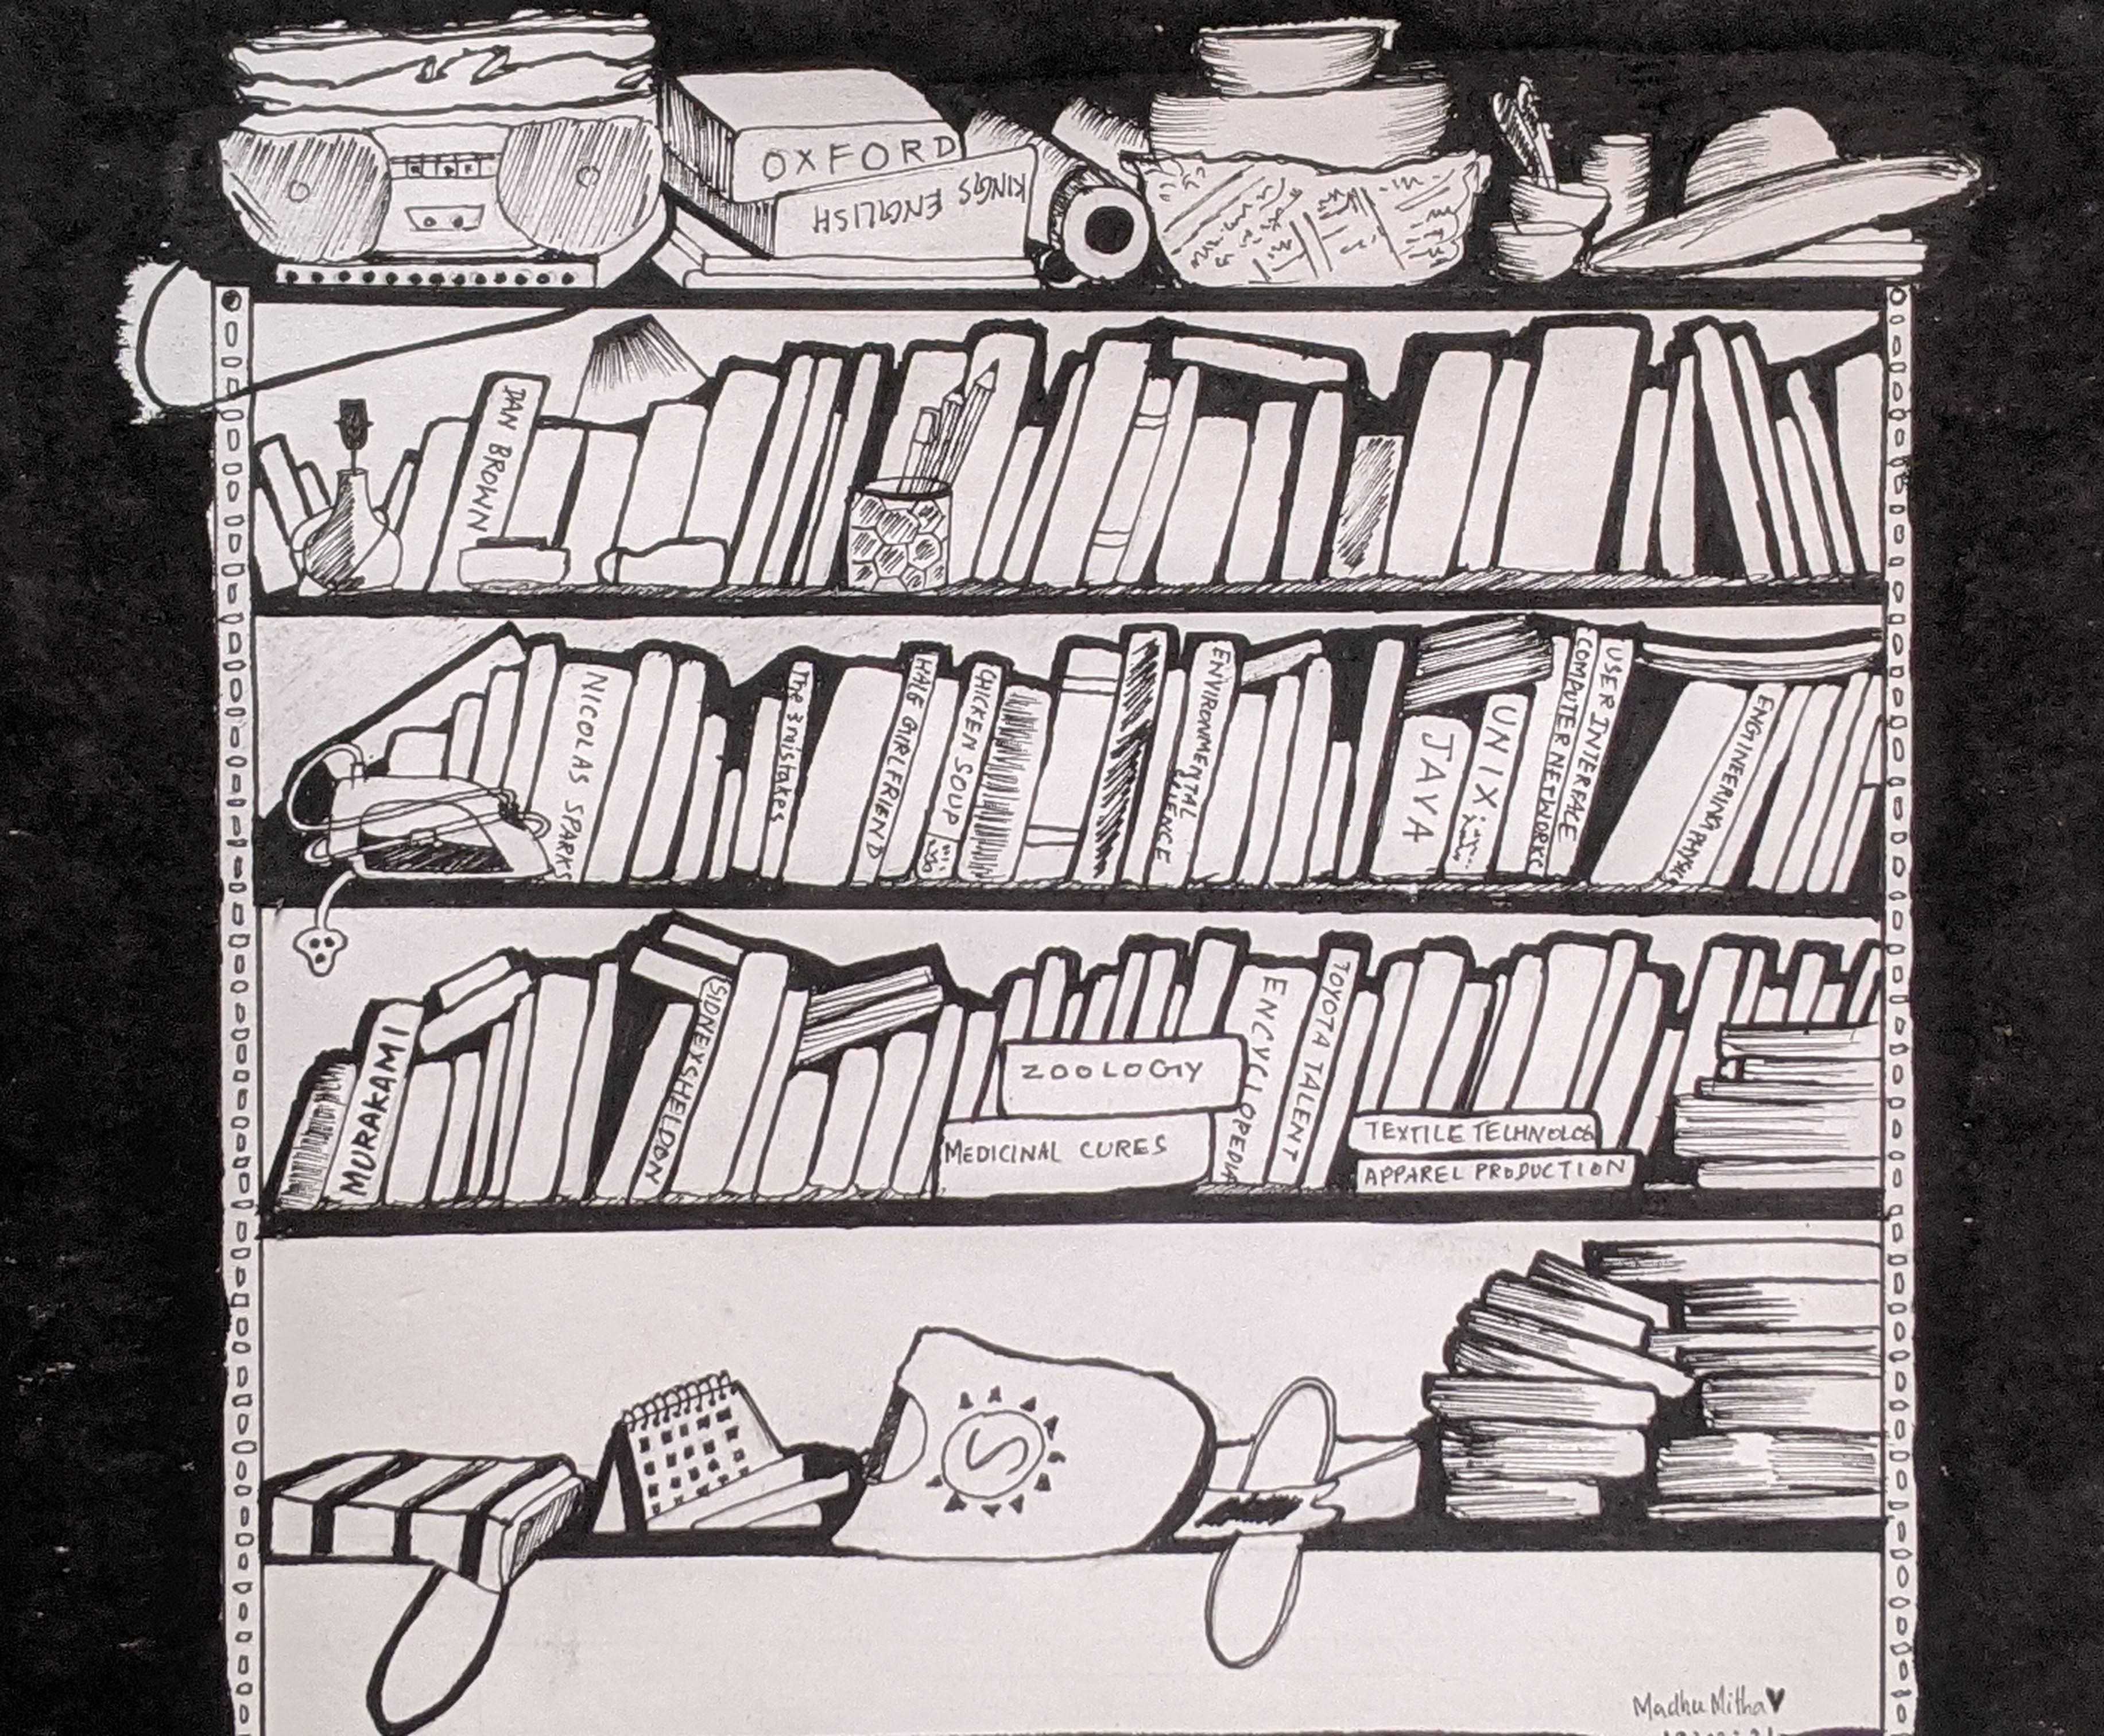 OXFORD
KINGS ENGLISH
DAN BROWN
NICOLAS SPARKS
The 3 mistakes
HALF GIRLFRIEND
CHICKEN SOUP
ENVIRONMENTAL
SCIENCE
JAVA
UNIX
COMPUTER NETWORKS
USER INTERFACE
ENGINEERING PHYSICS
MURAKAMI
SIDNEY SHELDON
ZOOLOGY
MEDICINAL CURES
ENCYCLOPEDIA
TOYOTA TALENT
TEXTILE TECHNOLOG
APPAREL PRODUCTION
S
Madhu Mitha♥